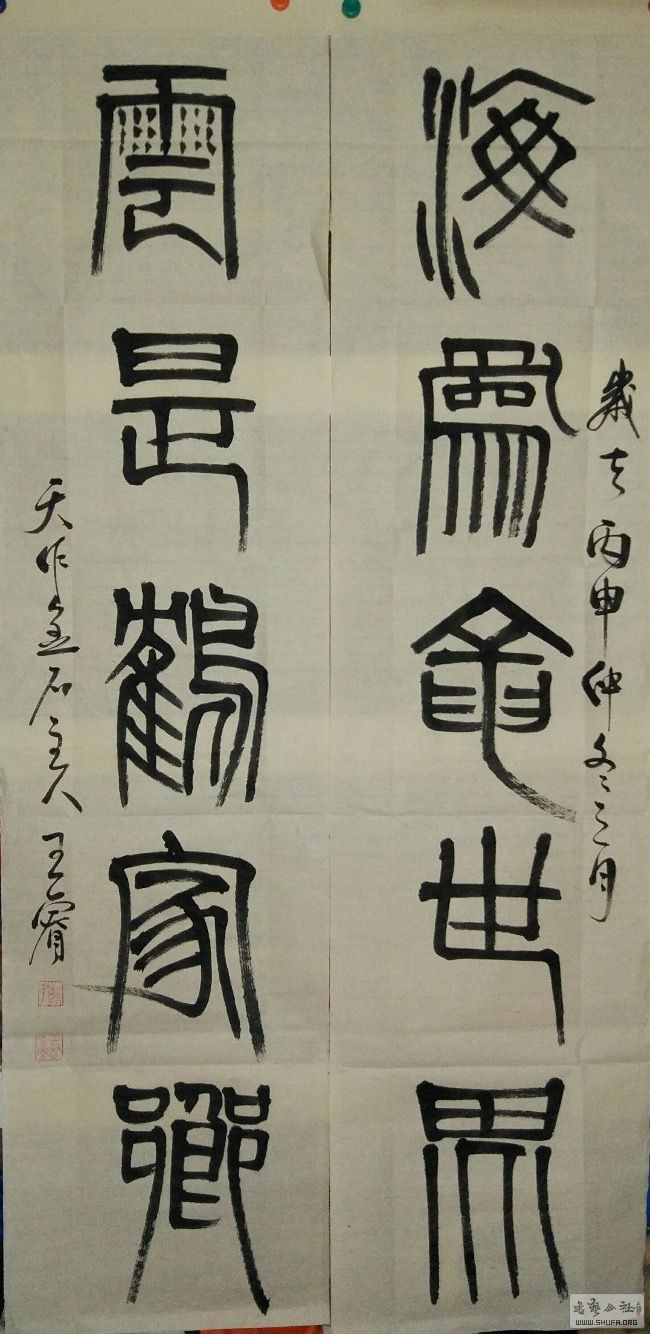 歲在丙申仲冬之月
海為龍世界
雲是鶴家鄉
天作金石主人王
书艺公社
WWW.SHUFA.ORG